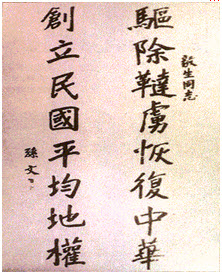 敬生同志
驅除韃虜恢復中華
創立民國平均地權
孫文